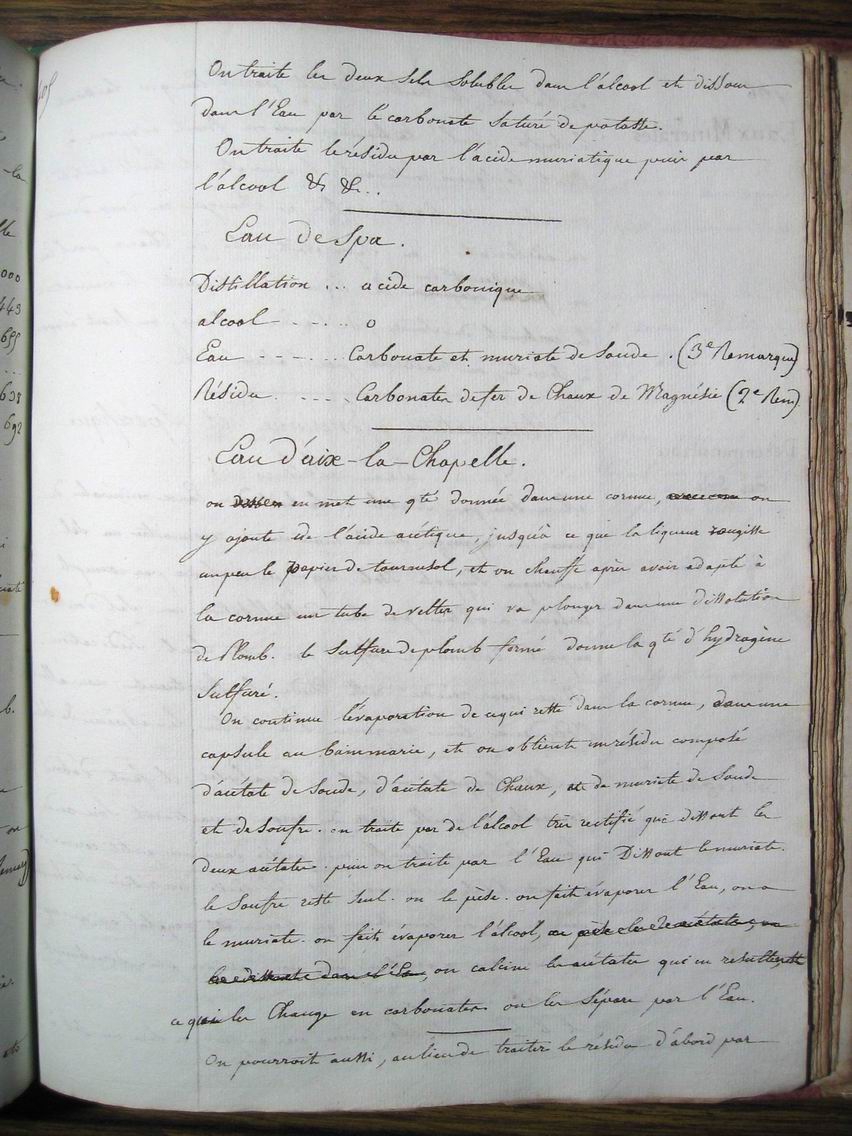 On traite les deux sels solubles dans l'alcool et dissous
dans l'Eau par le carbonate saturé de potasse.
On traite le résidu par l'acide muriatique puis par
l'alcool &c &c..
Eau de Spa.
Distillation ... acide carbonique
alcool - - . . . . 0
Eau - - - . ... Carbonate et muriate de Soude . (3e Remarque)
Résidu. . - - . Carbonates de fer de Chaux de Magnésie (2e Rem)
Eau d'aix-la-Chapelle.
on en met une qté donnée dans une cornue, on
y ajoute de l'acide acétique, jusqu'à ce que la liqueur rougisse
un peu le papier de tournesol, et on chauffe après avoir adapté à
la cornue un tube de velter qui va plonger dans une dissolution
de Plomb. le Sulfure de plomb formé donne la qté d'hydrogène
Sulfuré.
On continue l'évaporation de ce qui reste dans la cornue, dans une
capsule au bainmarie, et on obtient un résidu composé
d'acétate de Soude, d'acétate de Chaux, de muriate de Soude
et de Soufre. on traite par de l'alcool très rectifié qui dissout les
deux acétates. puis on traite par l'Eau qui Dissout le muriate.
le Soufre reste seul. on le pèse. on fait évaporer l'Eau, on a
le muriate. on fait évaporer l'alcool,
on calcine les acétates qui en résultent
ce qui les Change en carbonates on les Sépare par l'Eau.
On pourroit aussi, au lieu de traiter le résidu d'abord par